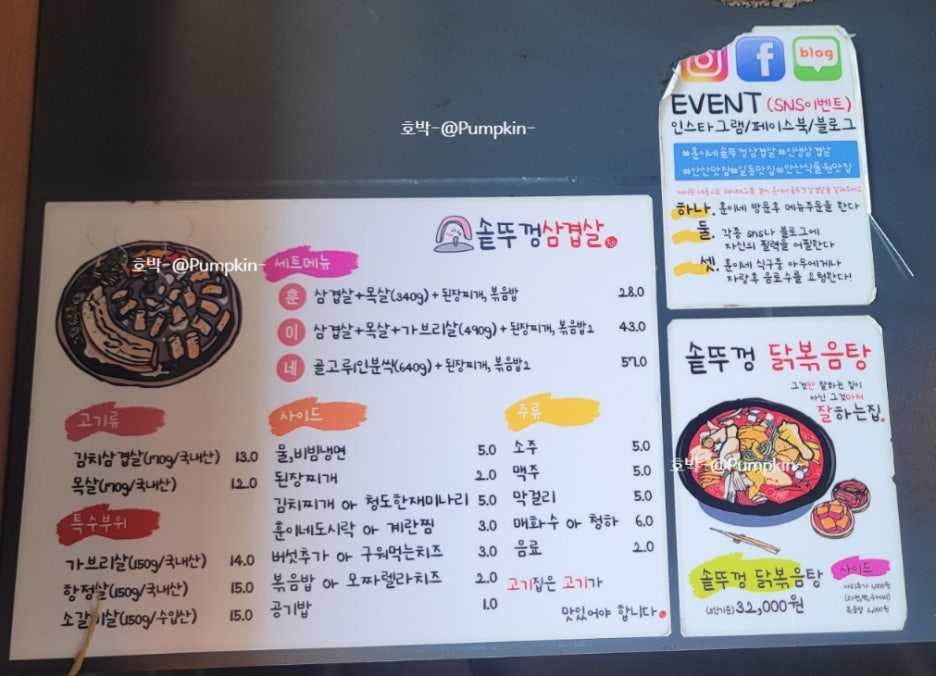 호박-@Pumpkin-
솥뚜껑삼겹살
호박-@Pumpkin-
세트메뉴
훈 삼겹살+목살(340g) + 된장찌개, 볶음밥 28.0
이 삼겹살+목살+가브리살(490g) + 된장찌개, 볶음밥2 43.0
네 골고루1인분씩(640g) + 된장찌개, 볶음밥2 57.0
고기류
김치삼겹살(170g/국내산) 13.0
목살(170g/국내산) 12.0
특수부위
가브리살(150g/국내산) 14.0
항정살(150g/국내산) 15.0
소갈비살(150g/수입산) 15.0
사이드
물,비빔냉면 5.0
된장찌개 2.0
김치찌개 or 청도한재미나리 5.0
훈이네도시락 or 계란찜 3.0
버섯추가 or 구워먹는치즈 3.0
볶음밥 or 모짜렐라치즈 2.0
공기밥 1.0
주류
소주 5.0
맥주 5.0
막걸리 5.0
매화수 or 청하 6.0
음료 2.0
고기집은 고기가
맛있어야 합니다.
blog
EVENT (SNS이벤트)
인스타그램/페이스북/블로그
#훈이네솥뚜껑삼겹살 #인생삼겹살
#안산맛집#일동맛집#안산식물원맛집
하나. 훈이네 방문후 메뉴주문을 한다
둘. 각종 sns나 블로그에
자신의 필력을 어필한다
셋. 훈이네 식구중 아무에게나
자랑후 음료수를 요청한다!
솥뚜껑 닭볶음탕
그것만 잘하는 집이
아닌 그것마저
잘하는집.
호박-@Pumpkin-
솥뚜껑 닭볶음탕
32,000원
사이드
볶음밥 2,000원